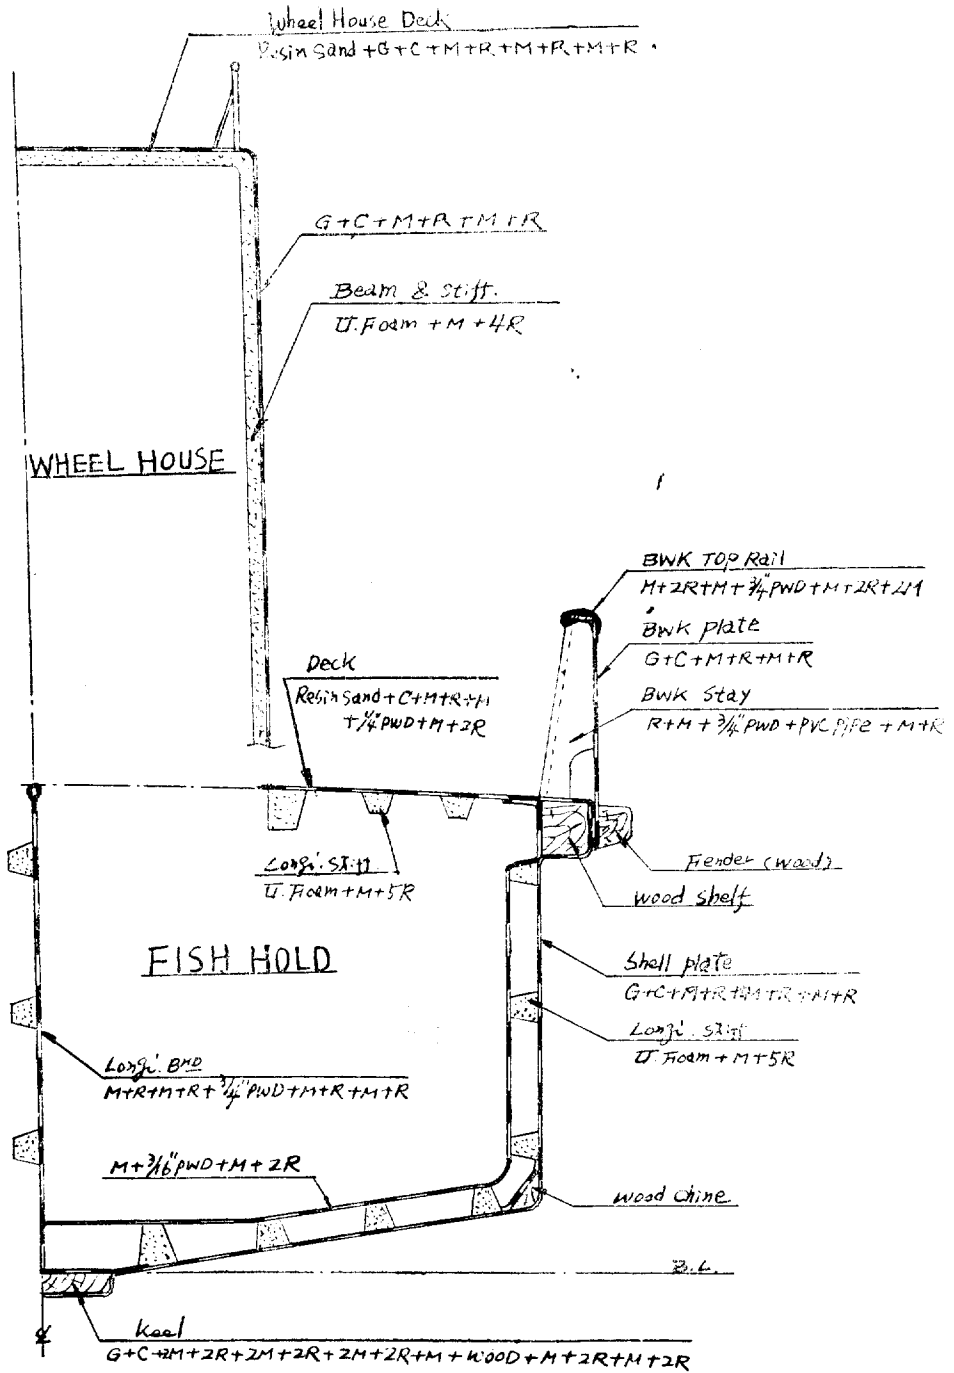 Wheel House Deck
Resin Sand + G + C + M + R + M + R + M + R
G + C + M + R + M + R
Beam & Stiff.
U. Foam + M + 4R
WHEEL HOUSE
BWK TOP Rail
M+2R+M+3/4"PWD+M+2R+2M
BWK Plate
G+C+M+R+M+R
BWK Stay
R+M+3/4"PWD+PVC Pipe+M+R
Deck
Resin Sand+C+M+R+M
+1/4"PWD+M+2R
Longi. Stiff
U. Foam+M+5R
Fender (wood)
Wood Shelf
FISH HOLD
Shell plate
G+C+M+R+M+R+M+R
Longi. Stiff
U. Foam+M+5R
Longi. BHD
M+R+M+R+3/4"PWD+M+R+M+R
M+3/16"PWD+M+2R
Wood Chine
B.L.
℄
Keel
G+C+2M+2R+2M+2R+2M+2R+M+WOOD+M+2R+M+2R